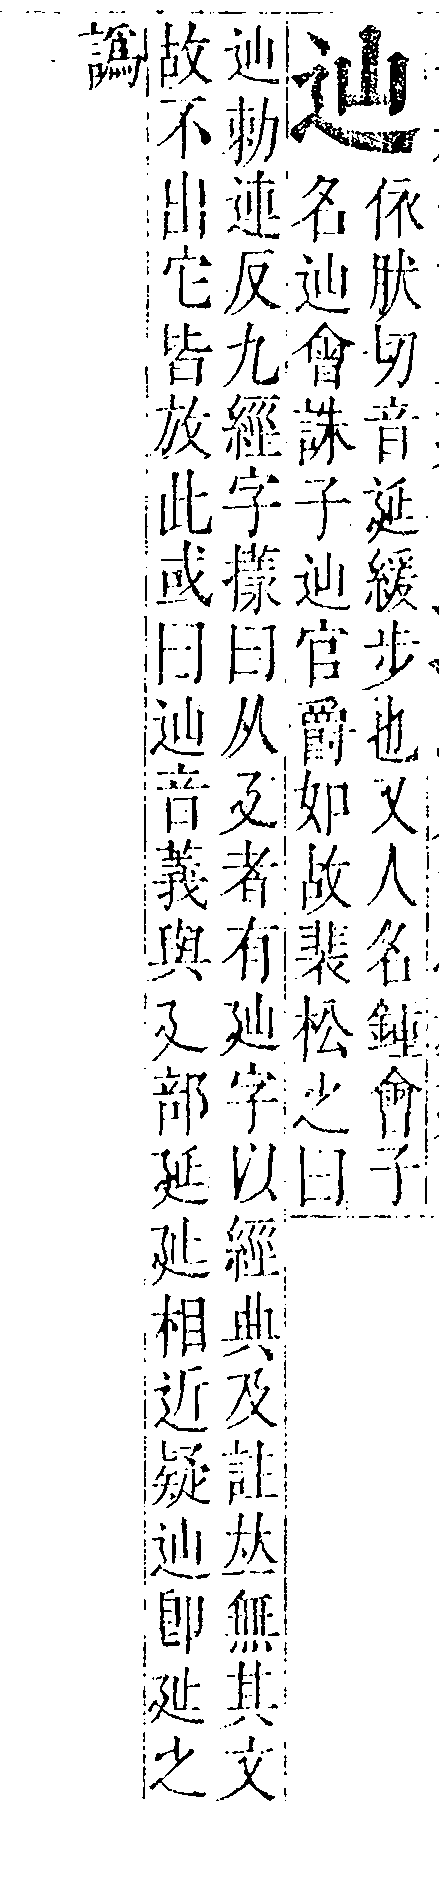 辿
依肰切音延緩步也又人名鍾會子
名辿會誅子辿官爵如故裴松之曰
辿勑連反九經字㨾曰从廴者有㢟字以經典及註𠀤無其文
故不出它皆放此或曰辿音義與廴部延㢟相近疑辿卽㢟之
譌